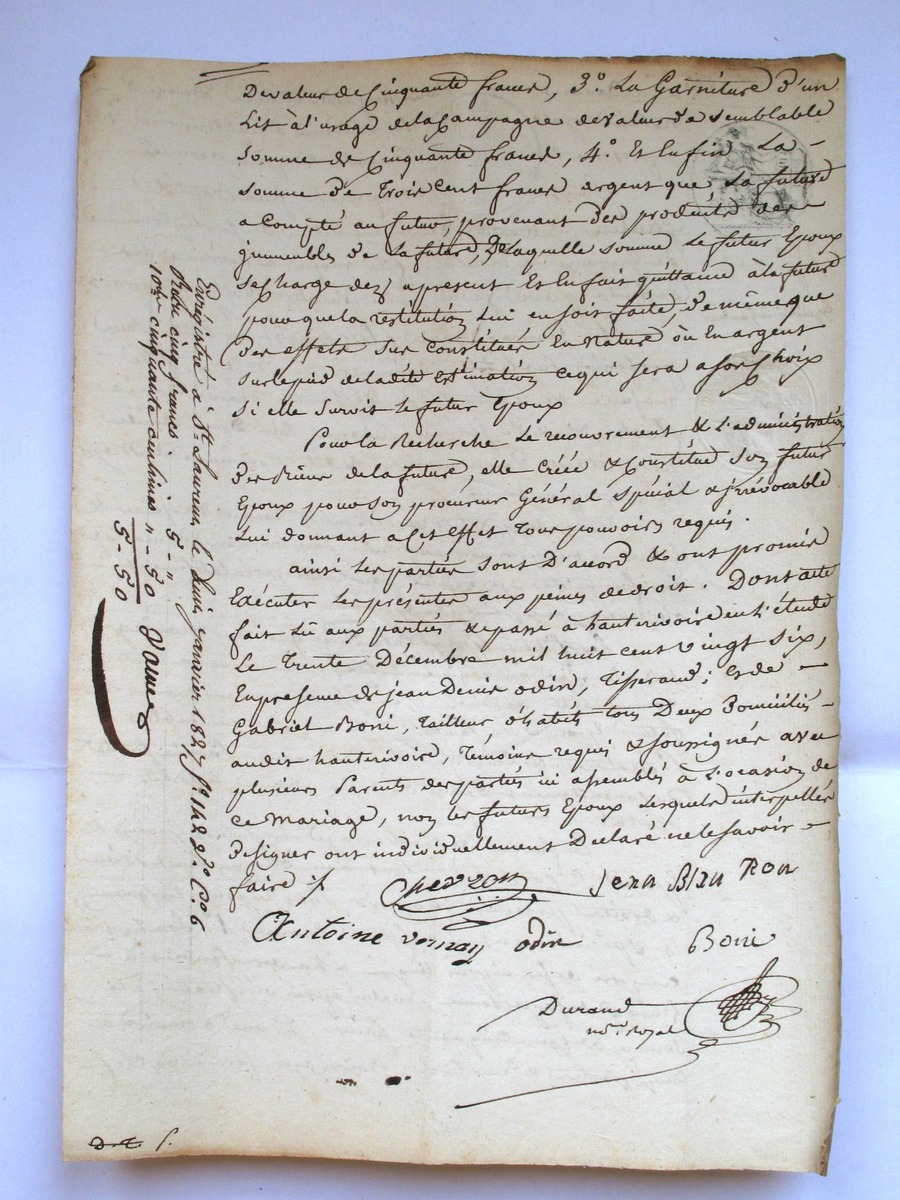 De valeur de Cinquante francs, 3.º La Garniture d'un
Lit à l'usage de la Campagne de valeur de semblable
somme de Cinquante francs, 4.º Et Enfin La
somme de Trois Cent francs argent que La future
a Compté au futur, provenant des produits des
immeubles de La future, De Laquelle somme Le futur Epoux
se charge dez a present Et En fait quittance à la future
pour que la restitution Lui en soit faite, de même que
Des effets sus Constitués En Nature où En argent
sur le pied de la dite Estimation ce qui sera a son Choix
si elle survit Le futur Epoux
Pour La Recherche Le recouvrement & L'administration
Des Biens de la future, elle Créée & Constitue Son futur
Epoux pour son procureur Général Spécial & irrévocable
Lui donnant a Cet effet Tous pouvoirs requis.
ainsi Les parties Sont D'accord & ont promis
Exécuter Les présentes aux peines de droit. Dont acte
fait Lû aux parties & passé à hauterivoire en L'étude
Le Trente Décembre mil huit cent vingt six,
En presence de jean Denis odin, Tisserand; Et de
Gabriel Boni, Tailleur d'habits tous Deux Domiciliés
audit hauterivoire, Témoins requis & soussignés avec
plusieurs Parents des parties ici assemblés à L'ocasion de
Ce Mariage, non les futurs Epoux Lesquels interpellés
De signer ont individuellement Déclaré ne le savoir
faire ./.
Jean
Antoine vernay odin Boni
Durand
no.re Royal
Enrégistré à St. Laurent le deux janvier 1827 f.º 142 V.º C.es 6
Reçu cinq francs. 5 - "
10me cinquante centimes " - 50
5 - 50